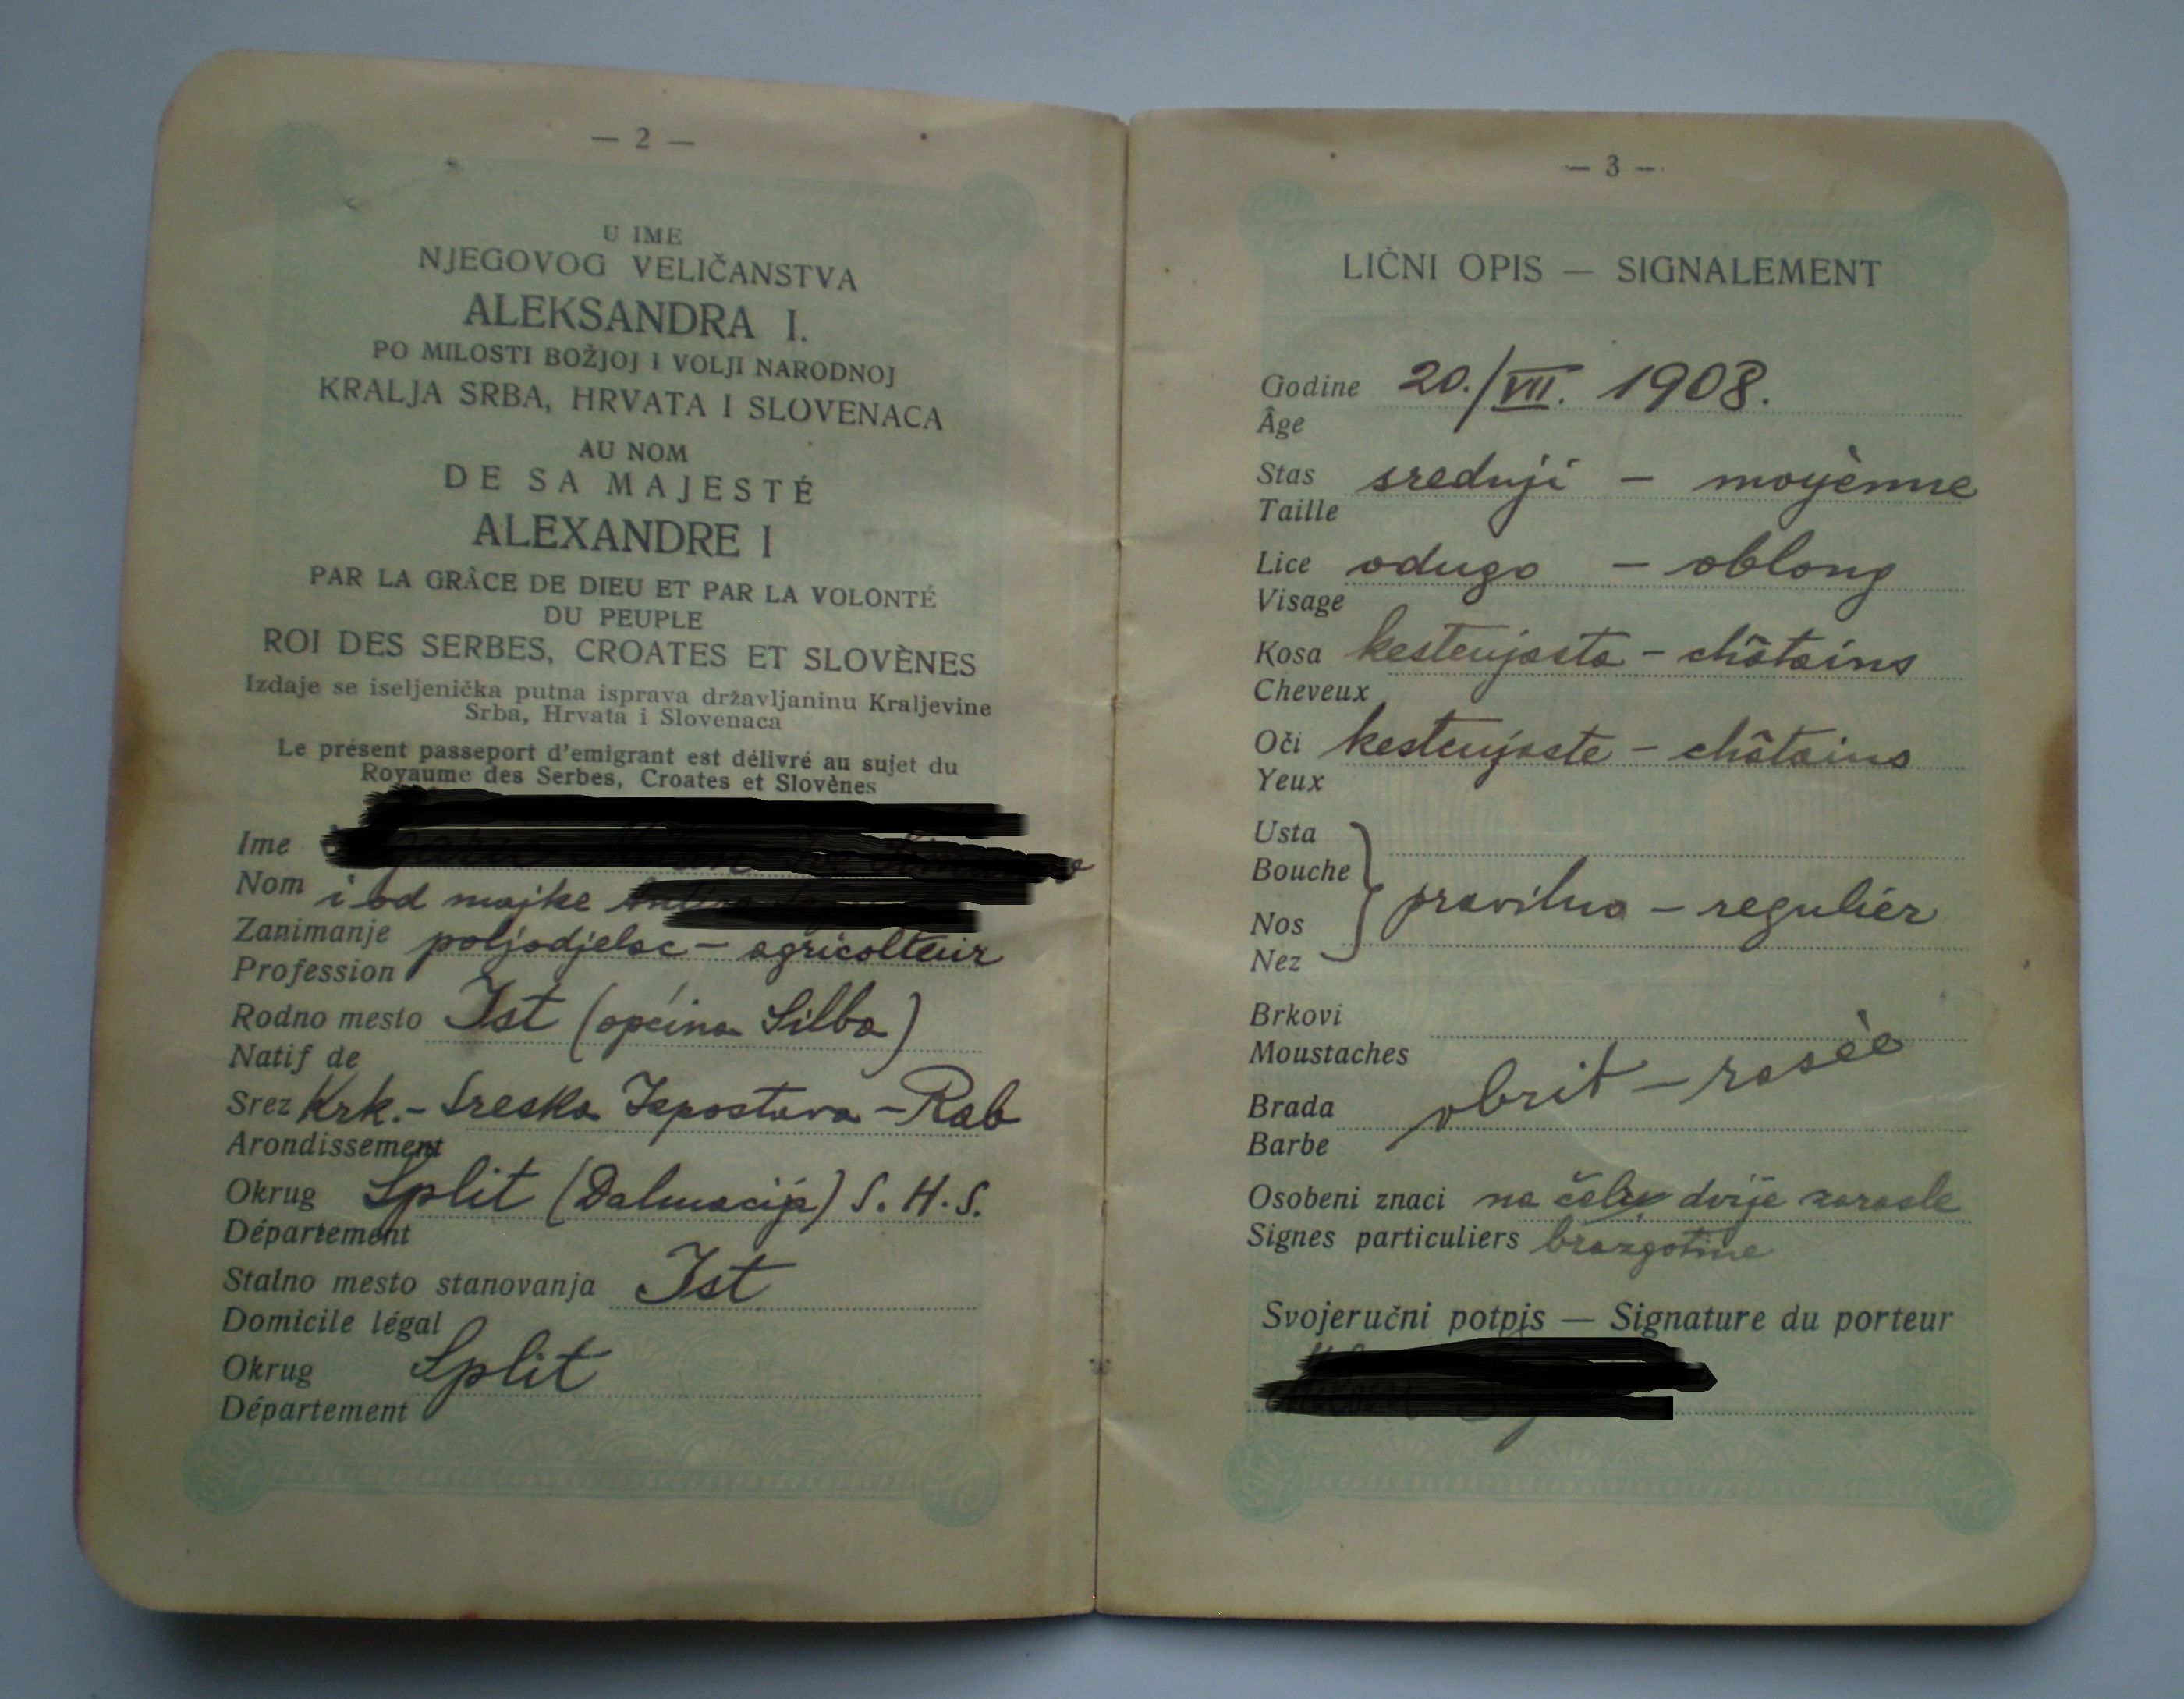 — 2 —
U IME
NJEGOVOG VELIČANSTVA
ALEKSANDRA I.
PO MILOSTI BOŽJOJ I VOLJI NARODNOJ
KRALJA SRBA, HRVATA I SLOVENACA
AU NOM
DE SA MAJESTÉ
ALEXANDRE I
PAR LA GRÂCE DE DIEU ET PAR LA VOLONTÉ
DU PEUPLE
ROI DES SERBES, CROATES ET SLOVÈNES
Izdaje se iseljenička putna isprava državljaninu Kraljevine
Srba, Hrvata i Slovenaca
Le présent passeport d'emigrant est délivré au sujet du
Royaume des Serbes, Croates et Slovènes
Ime
Nom i od majke
Zanimanje poljodjelac – agricolteur
Profession
Rodno mesto Ist (općina Silba)
Natif de
Srez Krk. – Sreska Ispostava – Rab
Arondissement
Okrug Split (Dalmacija) S. H. S.
Département
Stalno mesto stanovanja Ist
Domicile légal
Okrug Split
Département
— 3 —
LIČNI OPIS — SIGNALEMENT
Godine 20./VII. 1908.
Âge
Stas srednji – moyènne
Taille
Lice odugo – oblong
Visage
Kosa kestenjasta – châtains
Cheveux
Oči kestenjaste – châtains
Yeux
Usta
Bouche
pravilna – reguliér
Nos
Nez
Brkovi
Moustaches
obrit – rasèe
Brada
Barbe
Osobeni znaci na čelu dvije zarasle
Signes particuliers brazgotine
Svojeručni potpis — Signature du porteur